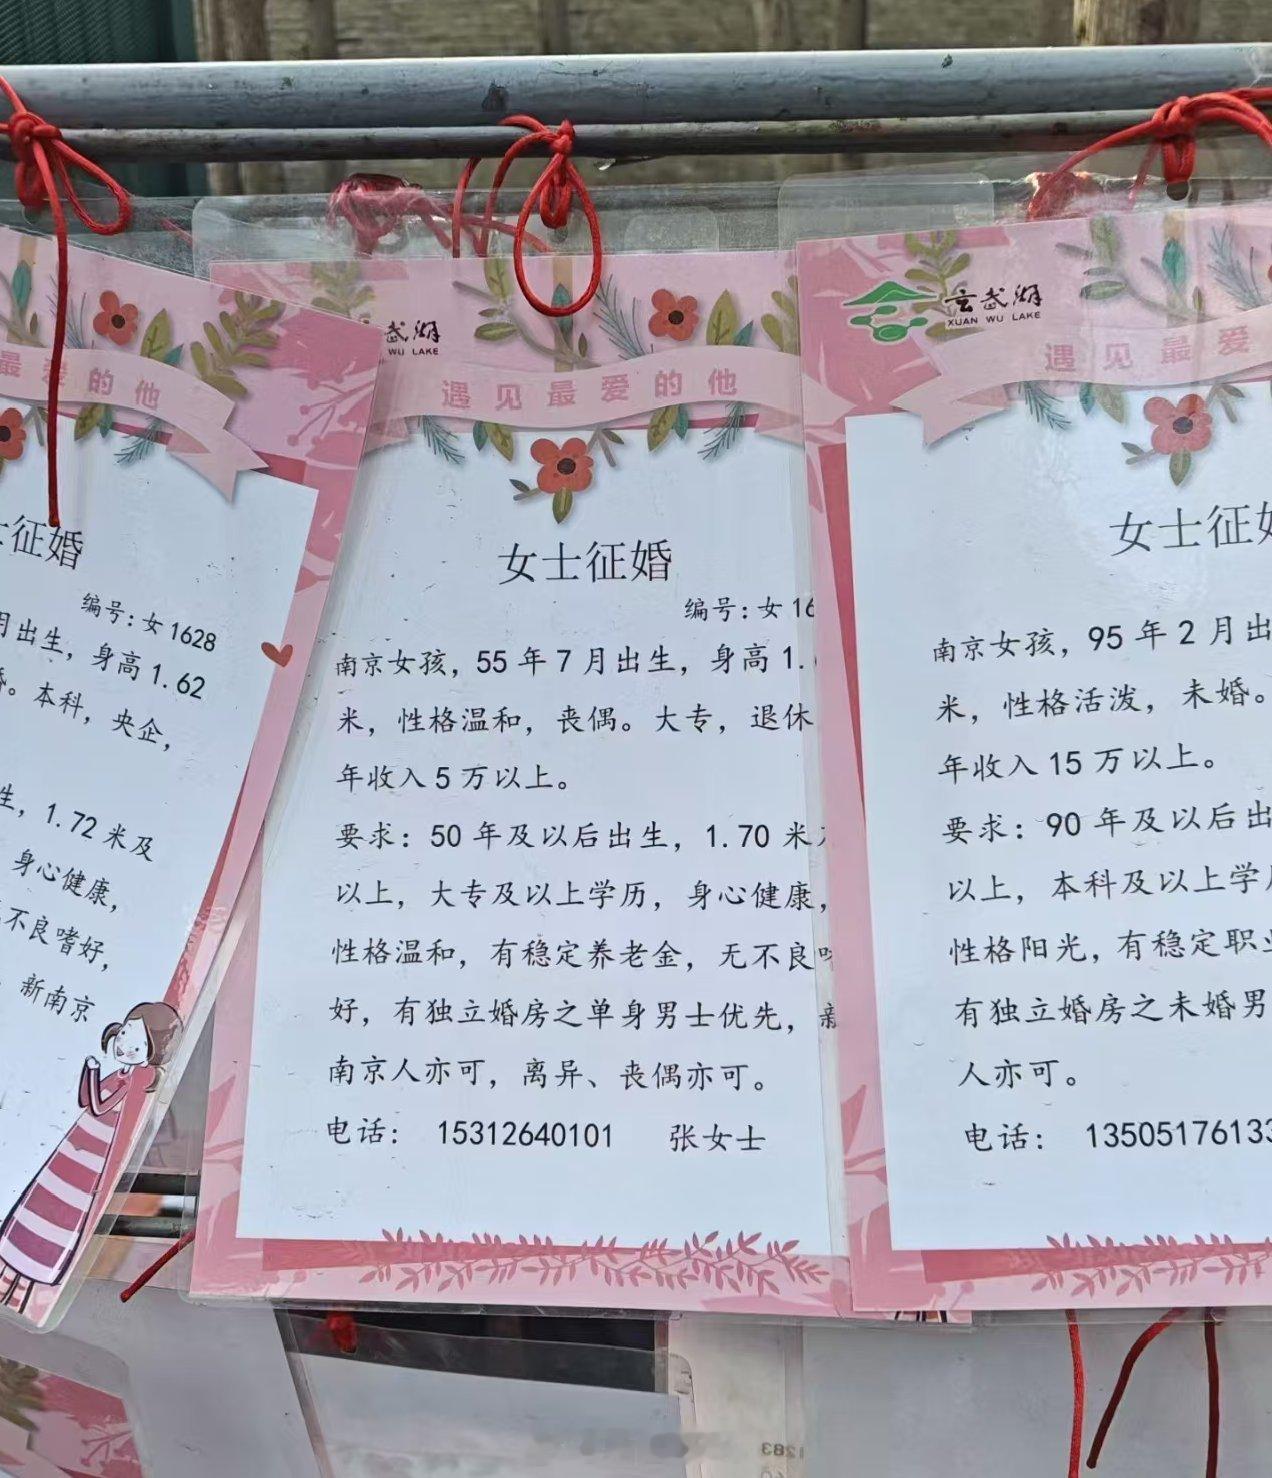 最爱的他
士征婚
编号：女1628
月出生，身高1.62
婚。本科，央企，
生，1.72米及
身心健康，
不良嗜好，
新南京
武湖
WU LAKE
遇见最爱的他
女士征婚
编号：女16
南京女孩，55年7月出生，身高1.
米，性格温和，丧偶。大专，退休
年收入5万以上。
要求：50年及以后出生，1.70米及
以上，大专及以上学历，身心健康，
性格温和，有稳定养老金，无不良嗜
好，有独立婚房之单身男士优先，新
南京人亦可，离异、丧偶亦可。
电话： 15312640101 张女士
玄武湖
XUAN WU LAKE
遇见最爱
女士征婚
南京女孩，95年2月出
米，性格活泼，未婚。
年收入15万以上。
要求：90年及以后出
以上，本科及以上学历
性格阳光，有稳定职业
有独立婚房之未婚男
人亦可。
电话： 1350517613